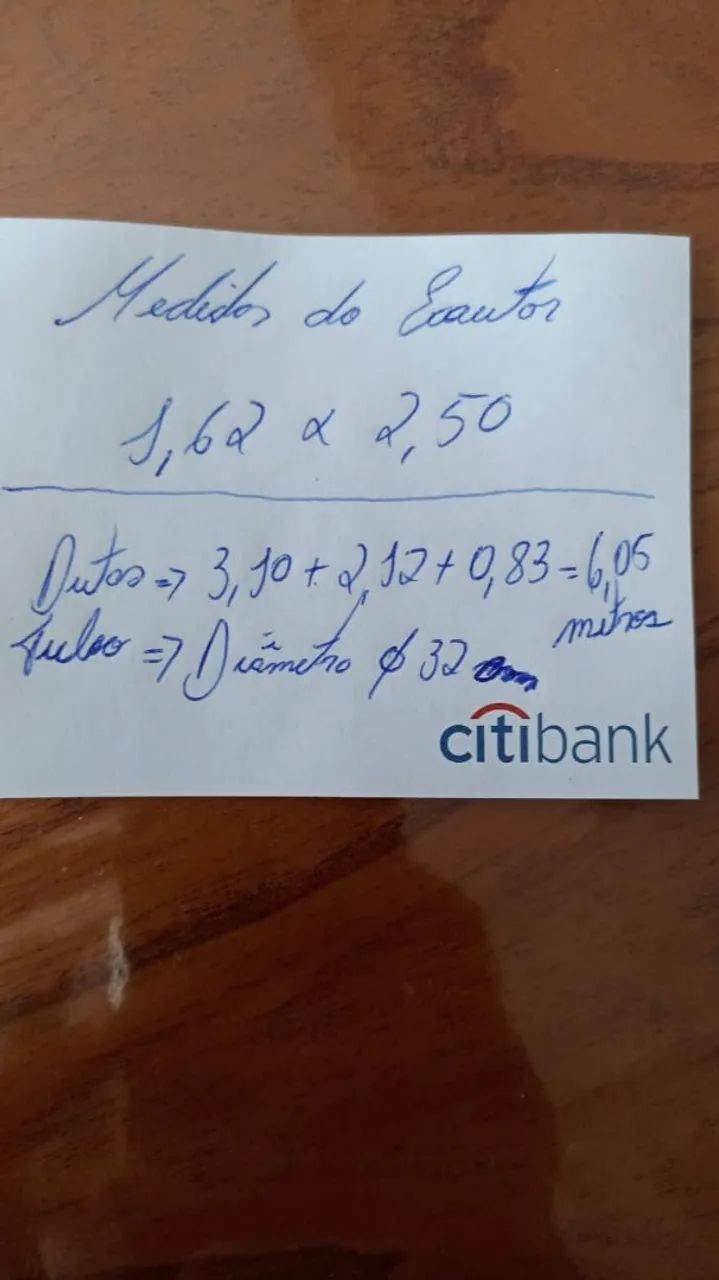 Medidas do Exautor
1,62 x 2,50
Dutos => 3,10 + 2,12 + 0,83 = 6,05
metros
=> Diâmetro ø 32 cm
citibank